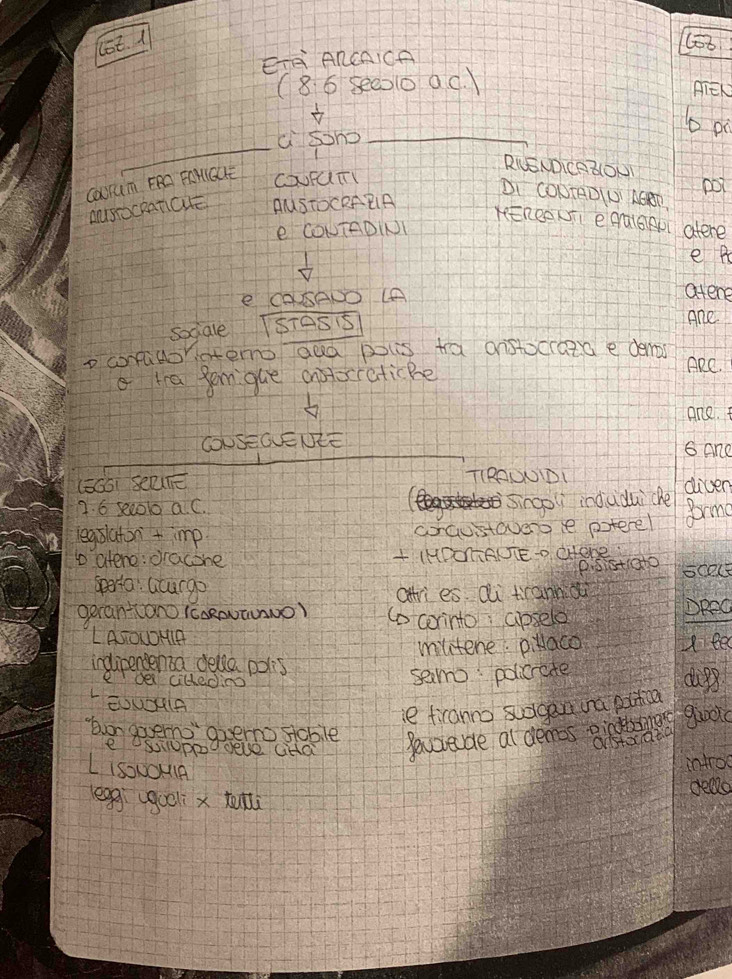 LEZ. 1
ETÀ ARCAICA
(8-6 secolo a.C.)
ci sono
CONFLITTI FRA FAMIGLIE
ARISTOCRATICHE
CONFLITTI
ARISTOCRAZIA
e CONTADINI
RIVENDICAZIONI
DI CONTADINI
MERCANTI e ARTIGIANI
e CAUSANO LA
STASIS
sociale
conflitto interno alla polis tra aristocrazia e demos
o tra famiglie aristocratiche
CONSEGUENZE
LEGGI SCRITTE
7-6 secolo a.C.
legislatori + imp.
atene: dracone
Sparta: licurgo
garantivano (GARANTIVANO)
L'AUTONOMIA
indipendenza della polis
e dei cittadino
L'EUNOMIA
"buon governo" governo stabile
e sviluppo della città
L'ISONOMIA
leggi uguali x tutti
TIRANNIDI
(singoli individui che
conquistavano il potere)
+ IMPORTANTE → atene:
pisistrato
altri es. di tirannidi
corinto: cipselo
militene: pittaco
samo: policrate
il tiranno svolgeva una politica
favorevole al demos e indebolimento
aristocrazia
LEZ.
ATEN
pr
poi
atene
e
atene
ARC.
ARC.
ARC.
6 ARC
diven
forma
SCELE
DRAC
diff
introd
della